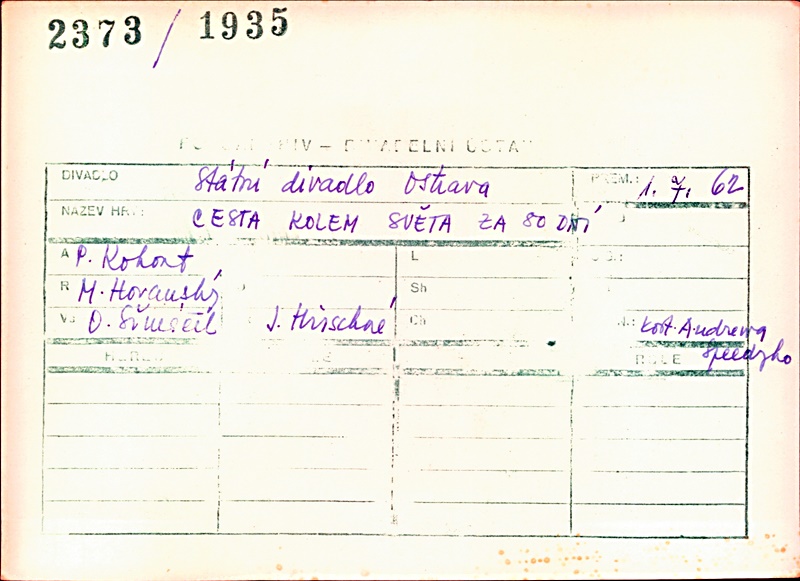 2373/1935
DIVADELNÍ ÚSTAV
DIVADLO Státní divadlo Ostrava PREM.: 1. 7. 62
NÁZEV HRY: CESTA KOLEM SVĚTA ZA 80 DNÍ
A P. Kohout L
R M. Horanský Sh
O. Šimáček J. Hirschné Ch kost. Andrewa
Speedyho
ROLE